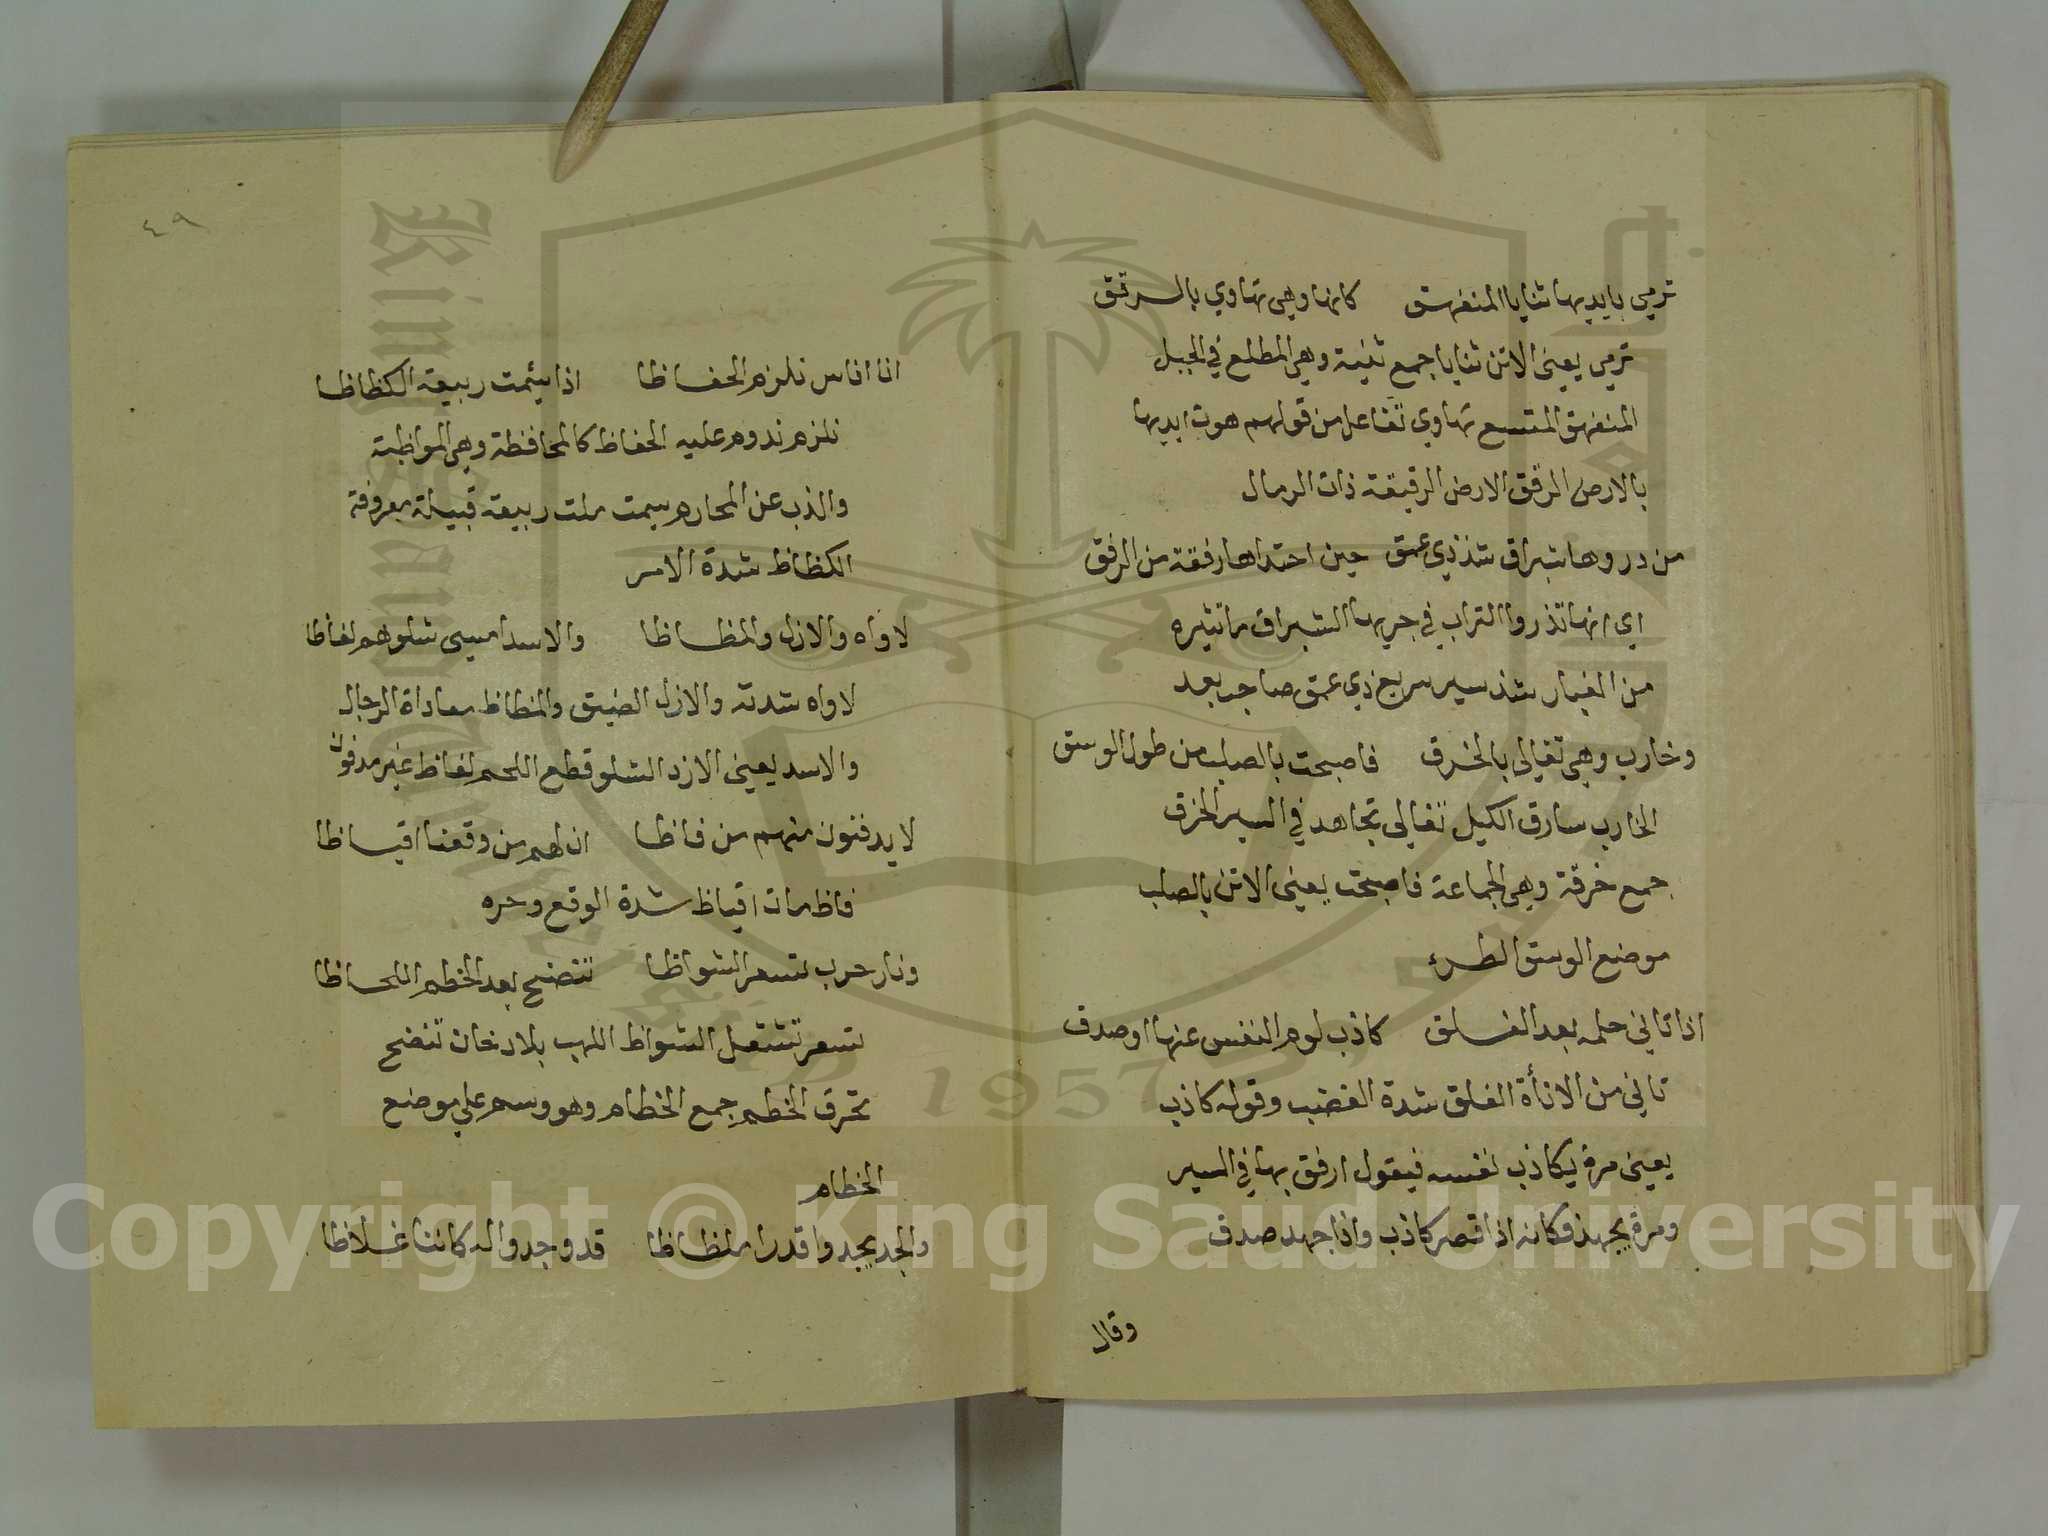 ترمي بايديها ثنايا المنفهق كانها وهي تهاوي بالرقق
ترمي يعني الاتن ثنايا جمع ثنية وهي المطلع في الجبل
المنفهق المتسع تهاوي تفاعل من قولهم هوت ايديها
بالارض الرقق الارض الرقيقة ذات الرمال
من دروها شبراق شد ذي عمق حين احتداها رفقة من الرفق
اي انها تذروا التراب في جريها الشبراق ما تثيره
من الغبار شد سير سريع ذي عمق صاحب بعد
وخارب وهي تغالي بالخرق فاصبحت بالصلب من طول الوسق
الخارب سارق تغالي تجاهد في السير الخرق
جمع خرقة وهي الجماعة فاصبحت يعني الاتن بالصلب
موضع الوسق الطرد
اذا تاني حلمه بعد الغلق كاذب لوم النفس عنها او صدق
تاني من الانأة الغلق شدة الغضب وقوله كاذب
يعني مرة يكاذب نفسه فيقول ارفق بها في السير
ومرة يجهد فكانه اذا قصر كاذب واذا جهد صدق
وقال
٤٩
انا اناس نلزم الحفاظا اذا سئمت ربيعة الكظاظا
نلزم ندوم عليه الحفاظ كالمحافظة وهي المواظبة
والذب عن المحارم سيمت ملت ربيعة قبيلة معروفة
الكظاظ شدة الامر
لاواه والازل والمظاظا والاسد امسى شلوهم لفاظا
لاواه شدته والازل الضيق والمظاظ معاداة الرجال
والاسد يعني الازد الشلو قطع اللحم لفاظ غير مدفون
لا يدفنون منهم من فاظا ان لهم من وقعنا اقياظا
فاظ مات اقياظ شدة الوقع وحره
ونار حرب تسعر الشواظا تنضج بعد الخطم اللحاظا
تسعر تشتعل الشواظ اللهب بلا دخان تنضج
تحرق الخطم جمع الخطام وهو وسم على موضع
الخطام
والجد يجدوا قدرا ملظاظا قد وجدوا له كاننا غلاظا
Copyright © King Saud University
King Saud University
1957